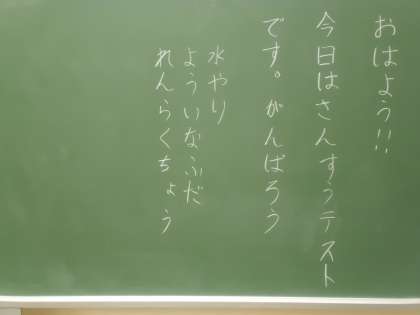 おはよう!!
今日はさんすうテスト
です。がんばろう
水やり
よういなふだ
れんらくちょう